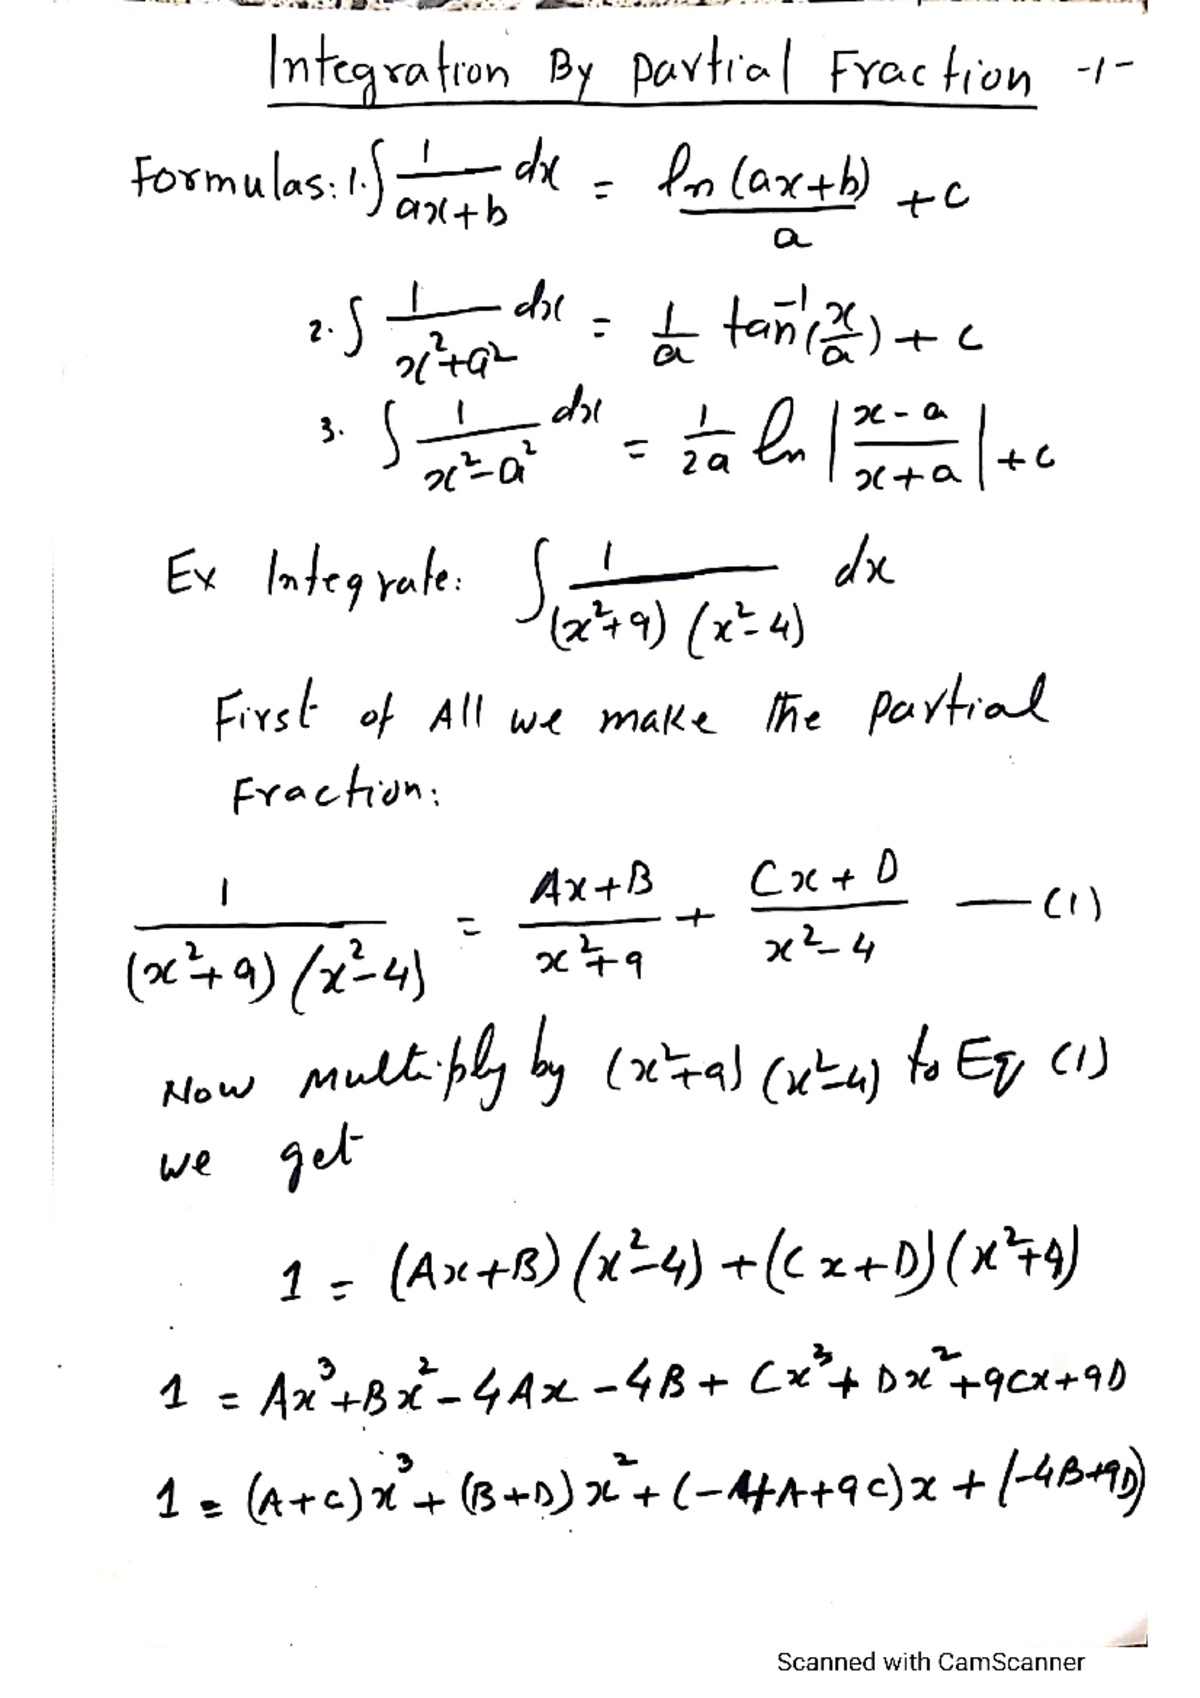 Integration By Partial Fraction -1-
Formulas: 1. ∫ 1/(ax+b) dx = ln(ax+b)/a + c
2. ∫ 1/(x²+a²) dx = 1/a tan⁻¹(x/a) + c
3. ∫ 1/(x²-a²) dx = 1/2a ln |(x-a)/(x+a)| + c
Ex Integrate: ∫ 1/((x²+9)(x²-4)) dx
First of All we make the Partial
Fraction:
1/((x²+9)(x²-4)) = (Ax+B)/(x²+9) + (Cx+D)/(x²-4) —(1)
Now multiply by (x²+9)(x²-4) to Eq (1)
we get
1 = (Ax+B)(x²-4)+(Cx+D)(x²+9)
1 = Ax³+Bx²-4Ax-4B+Cx³+Dx²+9Cx+9D
1 = (A+C)x³+(B+D)x²+(-4A+9C)x+(-4B+9D)
Scanned with CamScanner